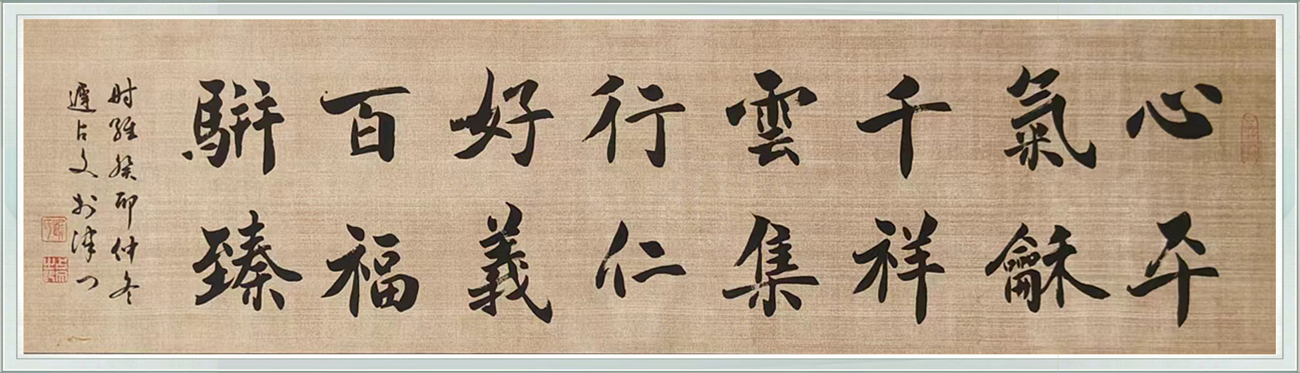 心平
氣龢
千祥
雲集
行仁
好義
百福
駢臻
时維癸卯仲冬
遲占文於津门